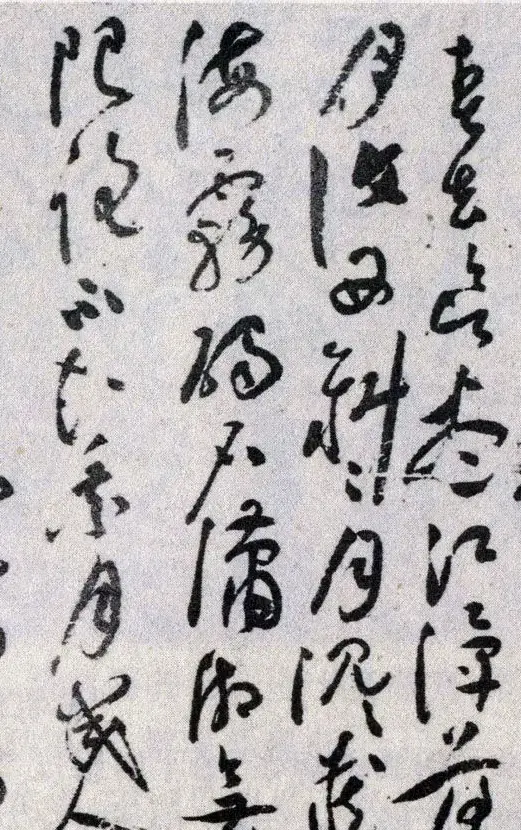 春去欲盡江潭落
月復西斜々月沉々藏
海霧碣石瀟湘無
限路不知乘月幾人